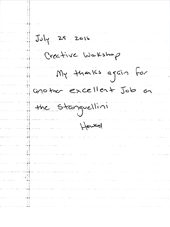 July 25 2016
Creative Workshop
My thanks again for
another excellent Job on
the Stanguellini
Howard